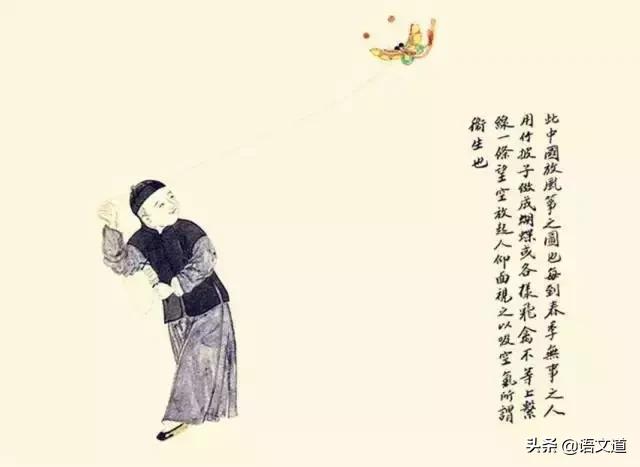 此中國放風箏之圖也每到春季無事之人
用竹披子做成蝴蝶或各樣飛禽不等上繫
線一條望空放起人仰面視之以吸空氣所謂
衛生也
头条 @语文道